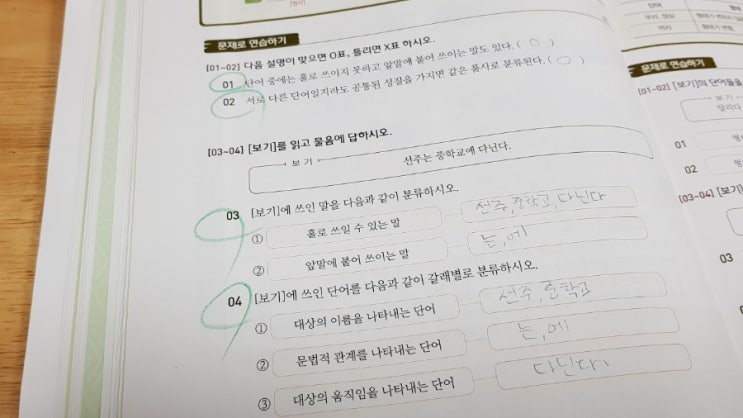 [명사]
문제로 연습하기
[01~02] 다음 설명이 맞으면 O표, 틀리면 X표 하시오.
01 단어 중에는 홀로 쓰이지 못하고 앞말에 붙어 쓰이는 말도 있다. ( O )
02 서로 다른 단어일지라도 공통된 성질을 가지면 같은 품사로 분류된다. ( O )
[03~04] [보기]를 읽고 물음에 답하시오.
보기
선주는 중학교에 다닌다.
03 [보기]에 쓰인 말을 다음과 같이 분류하시오.
① 홀로 쓰일 수 있는 말 선주, 중학교, 다닌다
② 앞말에 붙어 쓰이는 말 는, 에
04 [보기]에 쓰인 단어를 다음과 같이 갈래별로 분류하시오.
① 대상의 이름을 나타내는 단어 선주, 중학교
② 문법적 관계를 나타내는 단어 는, 에
③ 대상의 움직임을 나타내는 단어 다닌다
단어 형태
우리, 점심 형태가 변하지 않
먹자 형태가 변함
문제로 연습하기
[01~02] [보기]의 단어들을
보기
달리다
01
02
[03~04] [보기]
03
04